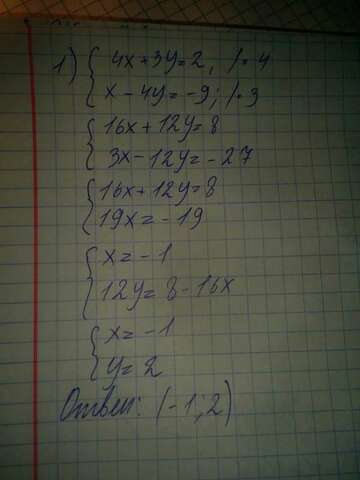 1) { 4x+3y=2, /·4
x-4y=-9; /·3
{ 16x+12y=8
3x-12y=-27
{ 16x+12y=8
19x=-19
{ x=-1
12y=8-16x
{ x=-1
y=2
Ответ: (-1;2)